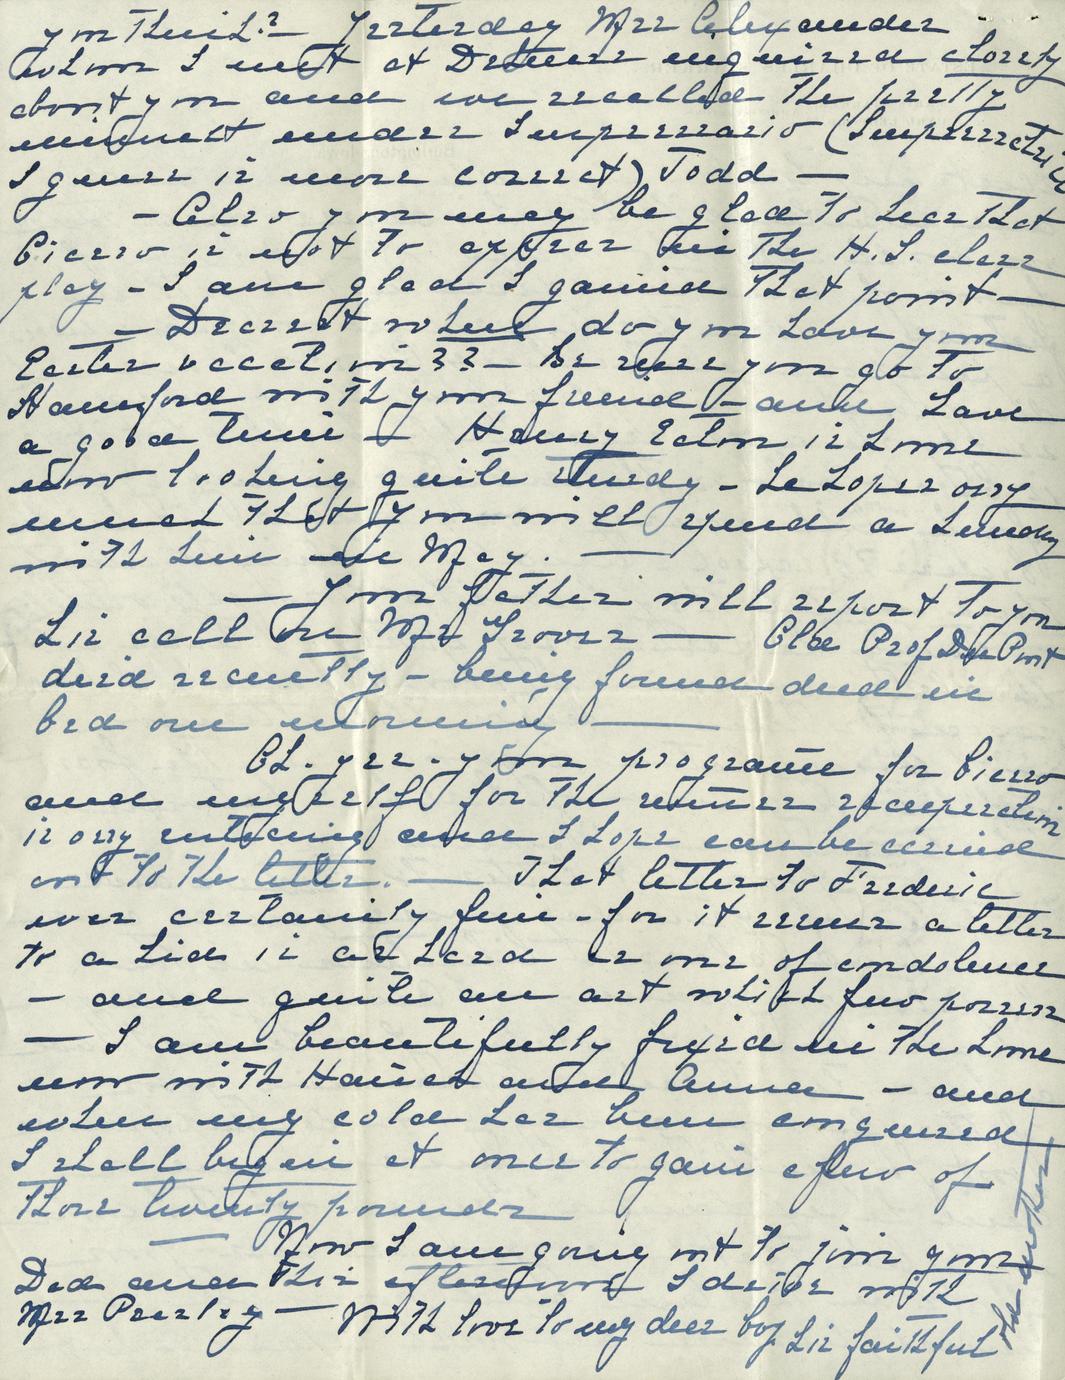 you think? — Yesterday Mrs Alexander
whom I met at Dehner's enquired closely
about you and we recalled the pretty
minuett under Impressario (Impressatrice
I guess is more correct) Todd —
— Also you may be glad to hear that
Pierro is not to appear in the H.S. class
play — I am glad I gained that point —
— Dearest when do you have your
Easter vacation?? — Be sure you go to
Hansford with your friend — and have
a good time — Henry Eaton is home
now looking quite sturdy — he hopes very
much that you will spend a Sunday
with him in May. —
— Your father will report to you
his call on Mr Grover — Old Prof DuPont
died recently — being found dead in
bed one morning —
Oh. yes. your programme for Pierro
and myself for the summer recuperation
is very enticing and I hope can be carried
out to the letter. — That letter to Frederic
was certainly fine — for it seems a letter
to a kid is as hard as one of condolence
— and quite an art which few possess
— I am beautifully fixed in the home
now with Hannah and Anna — and
when my cold has been conquered
I shall begin at once to gain a few of
those twenty pounds
— Now I am going out to join your
Dad and this afternoon I drive with
Mrs Presley — With love to my dear boy his faithful
old mother